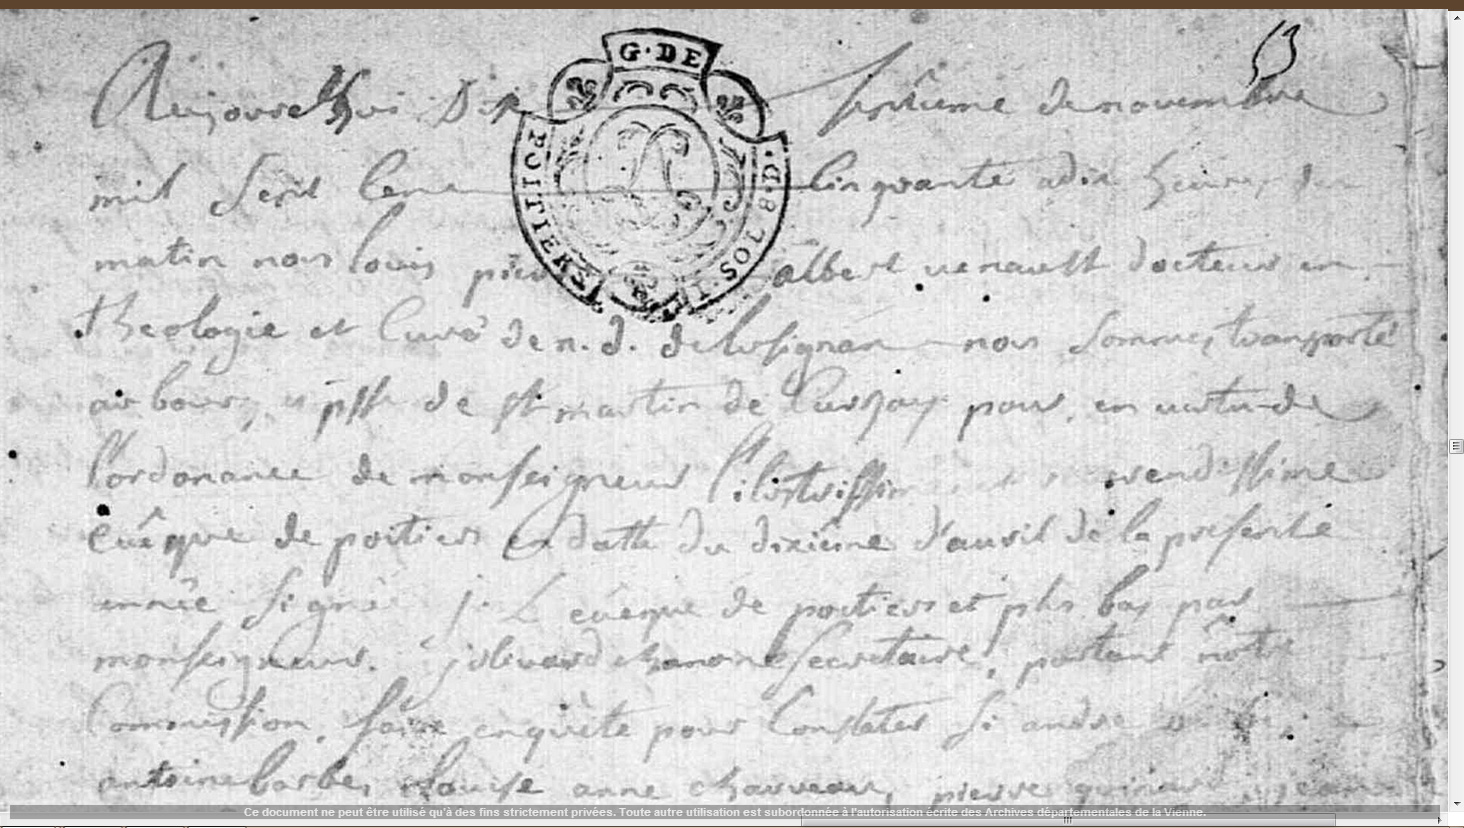 G·DE
POITIERS
I·SOL·8·D·
Aujourdhui Dix septieme de novembre
mil sept cent cinquante a dix heure du
matin nous louis pierre albert venault docteur en
theologie et Curé de n. d. de lusignan nous sommes transporté
au bourg et psse de st martin de Curzay pour, en vertu de
l'ordonance de monseigneur l'ilustrissime et reverendissime
evêque de poitiers en datte du dixiême d'avril de la presente
année signé j. L evêque de poitiers et plus bas par
monseigneur. chanoine secretaire, portant nôtre
Commission, faire enquête pour Constater si andré
antoine barbe, Louise anne chauveau, pierre jean
Ce document ne peut être utilisé qu'à des fins strictement privées. Toute autre utilisation est subordonnée à l'autorisation écrite des Archives départementales de la Vienne.